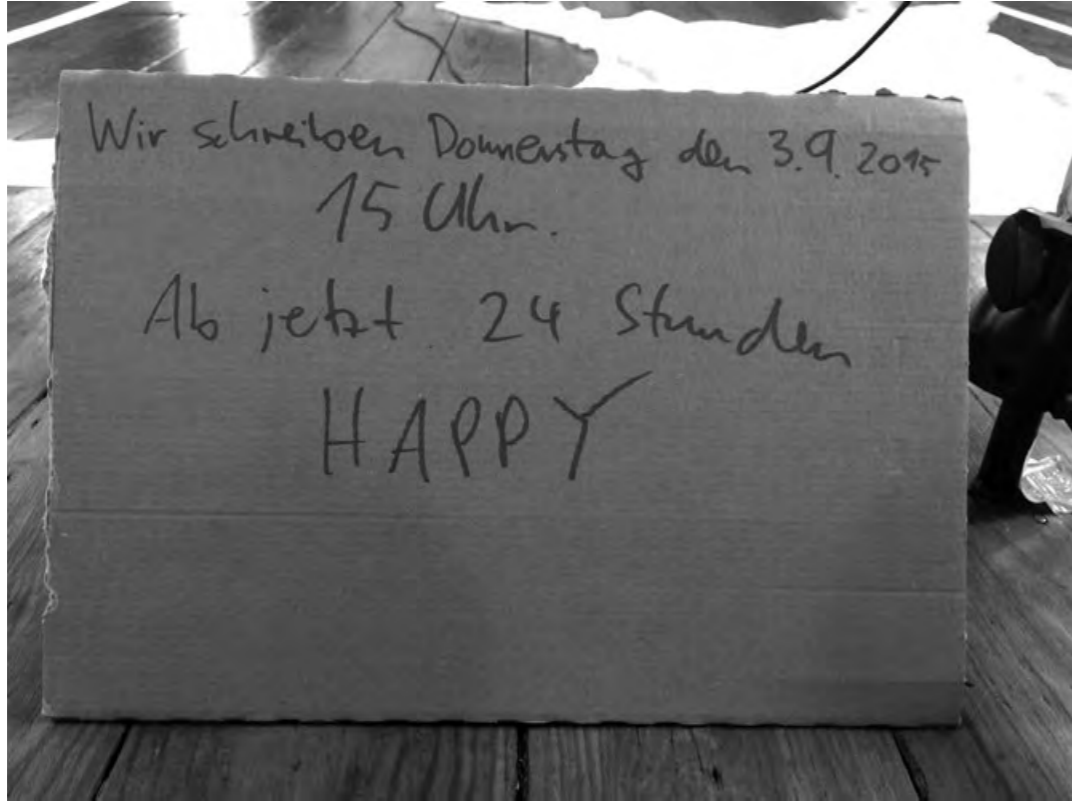 Wir schreiben Donnerstag den 3.9.2015
15 Uhr.
Ab jetzt 24 Stunden
HAPPY